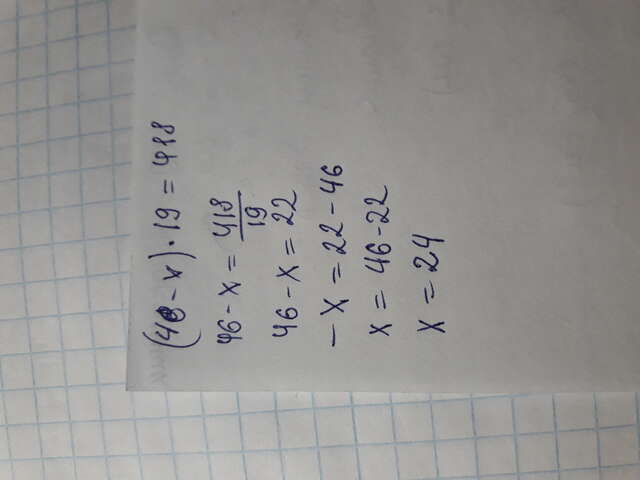 (46 - x) · 19 = 418
46 - x = 418/19
46 - x = 22
- x = 22 - 46
x = 46 - 22
x = 24